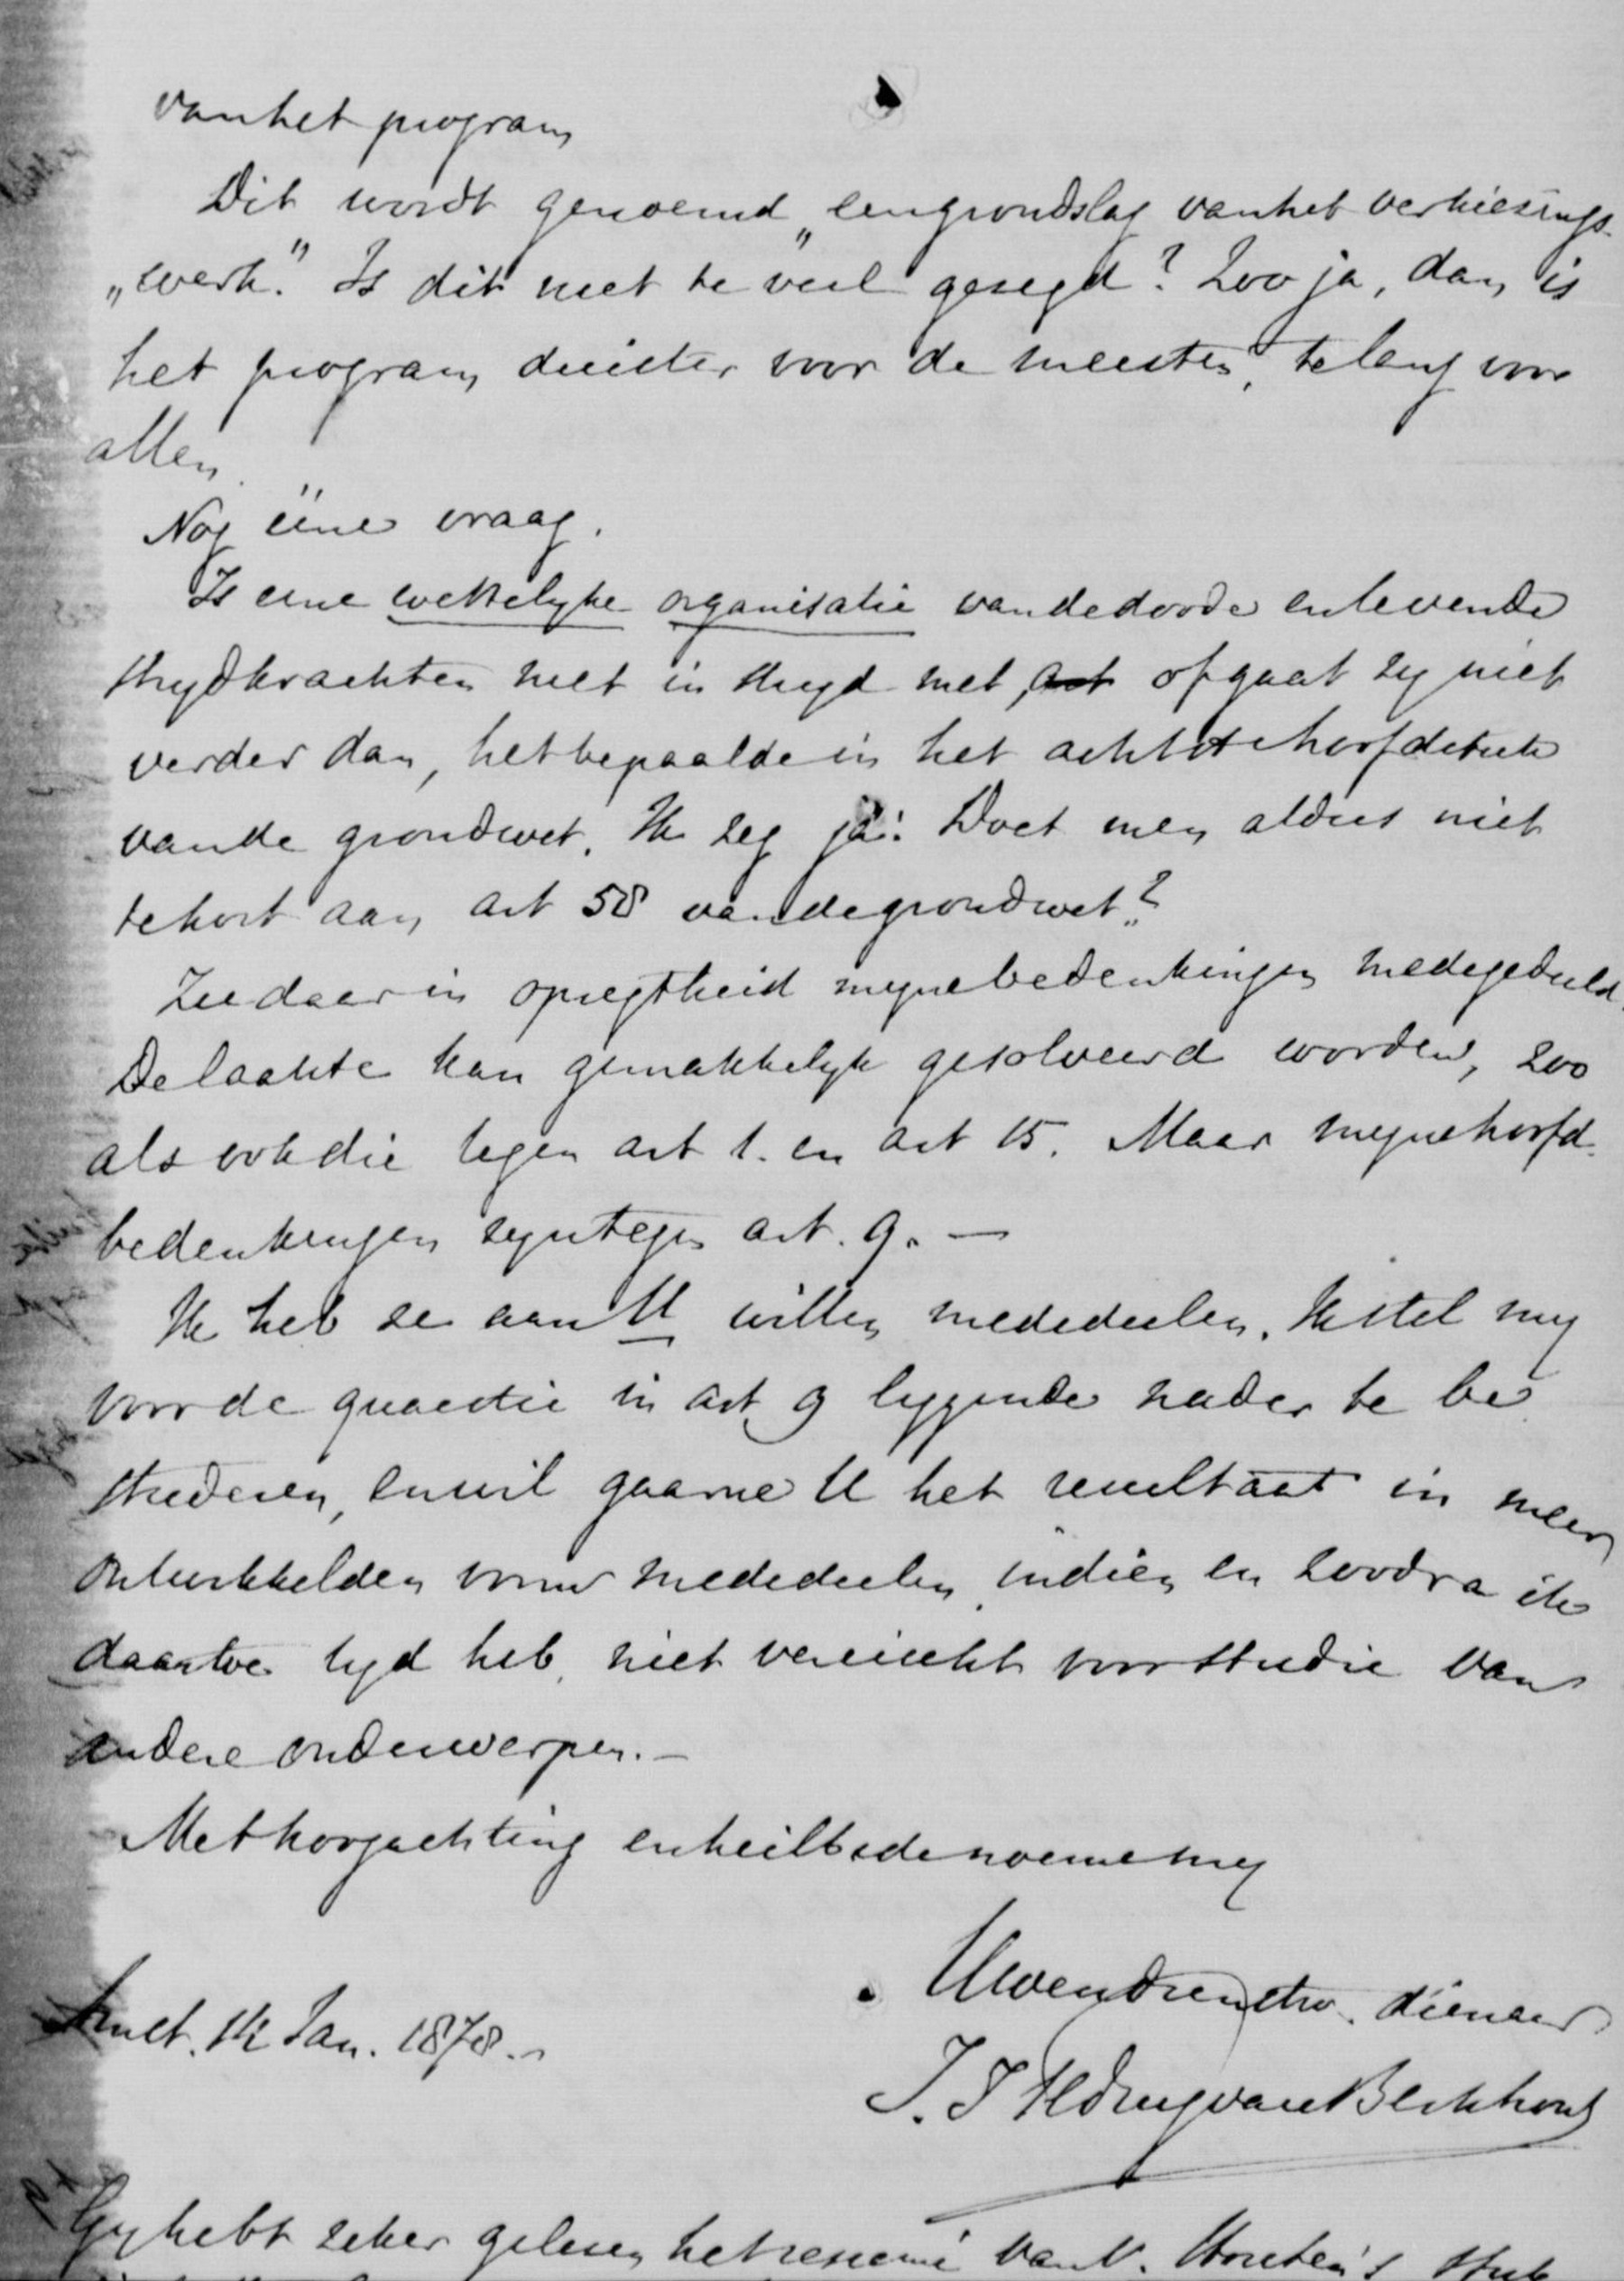 van het program
Dit wordt genoemd „een grondslag van het verkiezings-
„werk." Is dit niet te veel gezegd? Zoo ja, dan is
het program duister voor de meesten, te lang voor
allen.
Nog ééne vraag.
Is eene wettelyke organisatie van de doode en levende
strydkrachten niet in stryd met, art of gaat zy niet
verder dan, het bepaalde in het achtste hoofdstuk
van de grondwet. Ik zeg ja. Doet men aldus niet
te kort aan art 58 van de grondwet?
Ziedaar in opregtheid myne bedenkingen medegedeeld.
De laatste kan gemakkelyk gesolveerd worden, zoo
als ook die tegen art 1. en art 15. Maar myne hoofd-
bedenkingen zyn tegen art. 9. —
Ik heb ze aan U willen mededeelen. Ik stel my
voor de quaestie in art 9 liggende nader te be
studeren, en wil gaarne U het resultaat in meer
ontwikkelden vorm mededeelen, indien en zoodra ik
daartoe tyd heb, niet vereischt voor studie van
andere onderwerpen. —
Met hoogachting en heilbede noem my
Uwen dienstw. dienaar
Amst. 14 Jan. 1878.
P. J. Elout van Blokhout
Gy hebt zeker gelezen het resumé van V. Houten's stuk